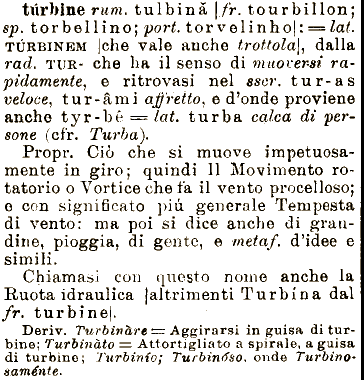 túrbine rum. tulbină |fr. tourbillon;
sp. torbellino; port. torvelinho|: = lat.
TÚRBINEM |che vale anche trottola|, dalla
rad. TUR- che ha il senso di muoversi ra-
pidamente, e ritrovasi nel sscr. tur-as
veloce, tur-âmi affretto, e d'onde proviene
anche tyr-bé = lat. turba calca di per-
sone (cfr. Turba).
Propr. Ciò che si muove impetuosa-
mente in giro; quindi Il Movimento ro-
tatorio o Vortice che fa il vento procelloso;
e con significato più generale Tempesta
di vento: ma poi si dice anche di gran-
dine, pioggia, di gente, e metaf. d'idee e
simili.
Chiamasi con questo nome anche la
Ruota idraulica |altrimenti Turbína dal
fr. turbine|.
Deriv. Turbinàre = Aggirarsi in guisa di tur-
bine; Turbinàto = Attortigliato a spirale, a guisa
di turbine; Turbinío; Turbinóso, onde Turbino-
saménte.